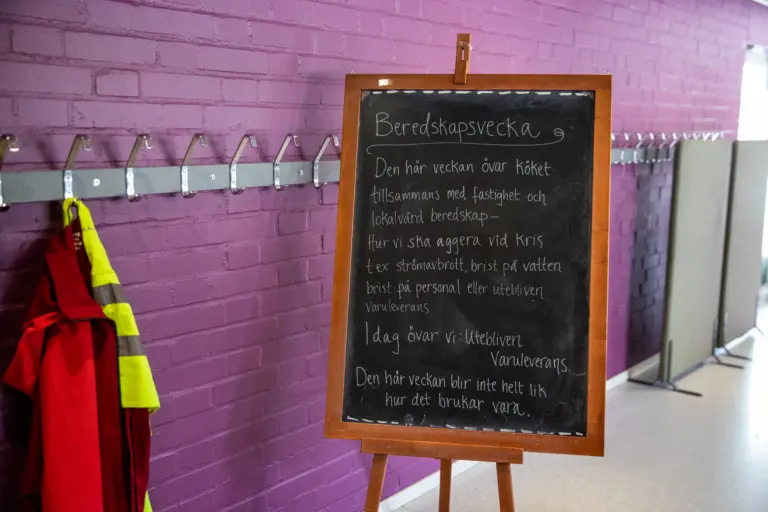 Beredskapsvecka
Den här veckan övar köket
tillsammans med fastighet och
lokalvård beredskap-
Hur vi ska aggera vid kris
tex strömavbrott, brist på vatten
brist på personal eller utebliven
varuleverans
Idag övar vi: Utebliven
Varuleverans
Den här veckan blir inte helt lik
hur det brukar vara...